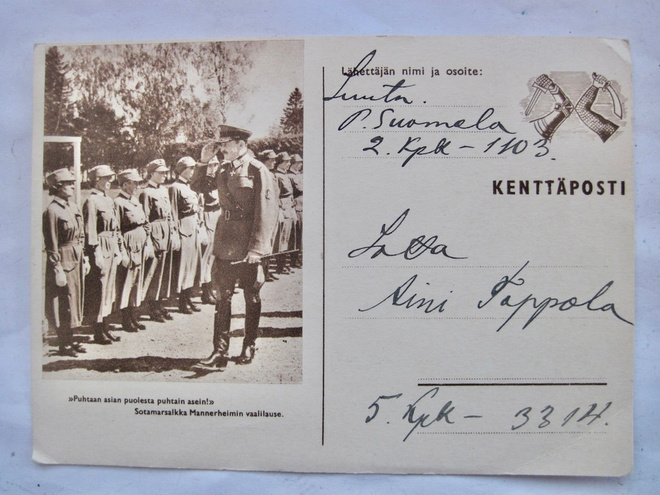 »Puhtaan asian puolesta puhtain asein!»
Sotamarsalkka Mannerheimin vaalilause.
Lähettäjän nimi ja osoite:
Luutn.
P. Suomela
2. Kpk - 1103.
KENTTÄPOSTI
Lotta
Aini Tappola
5. Kpk - 3314.